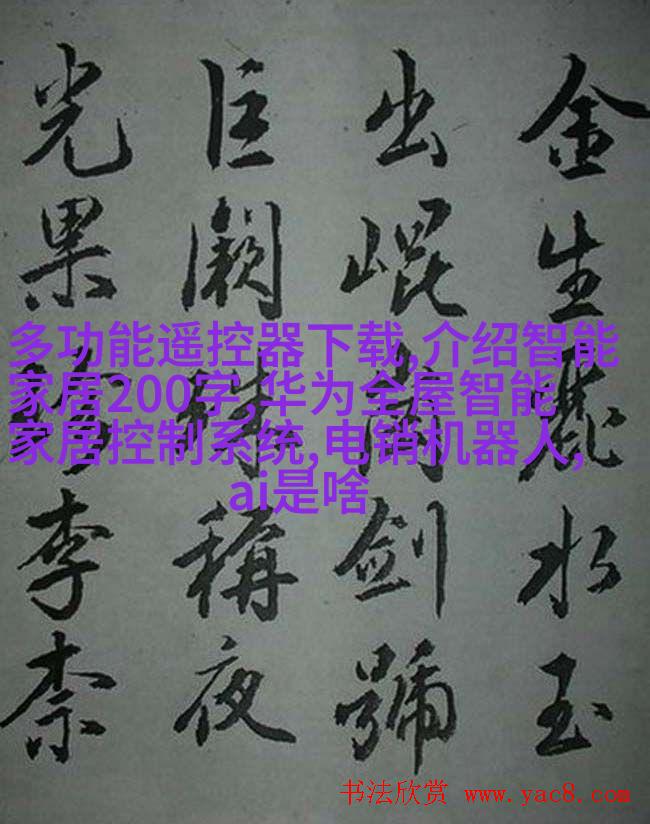 金生麗水玉
出崐崗劍號
巨闕珠稱夜
光果珍李柰
多功能遥控器下载,介绍智能
家居200字,华为全屋智能
家居控制系统,电销机器人,
ai是啥
书法欣赏 www.yac8.com